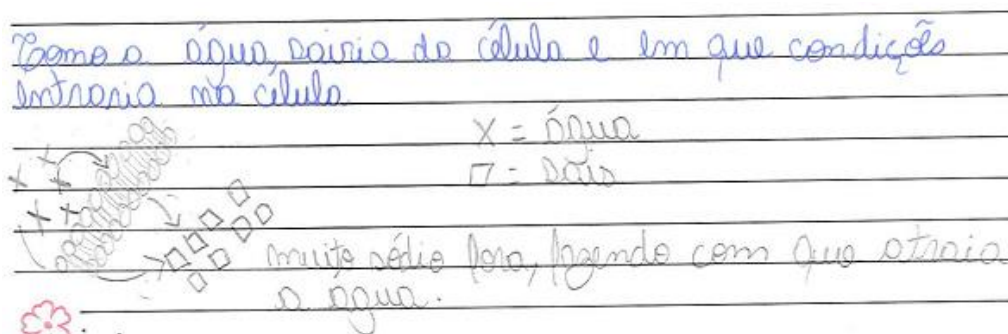 Como a água sairia da célula e em que condições
entraria na célula
X = água
□ = sais
muito sódio fora, fazendo com que atraia
a água.